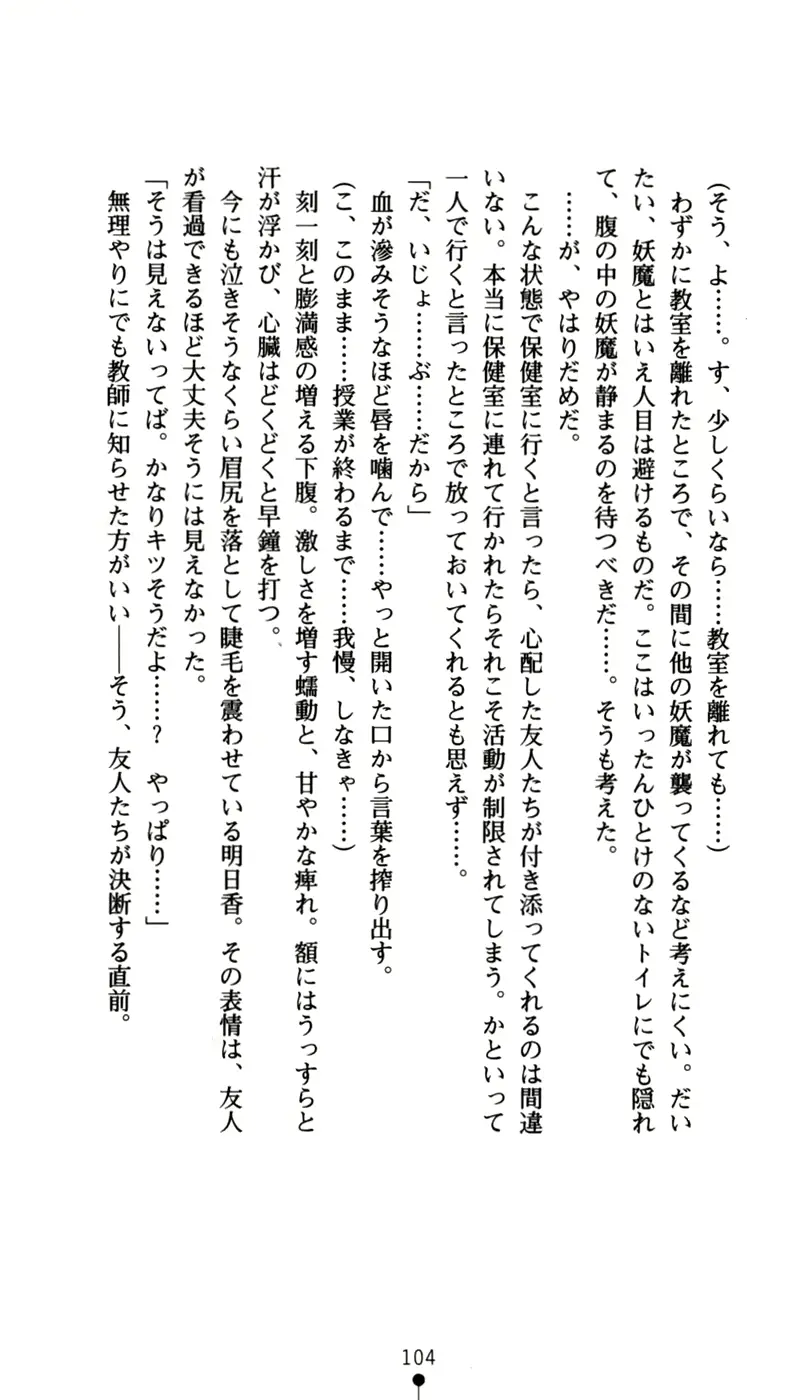 (そう、よ……。す、少しくらいなら……教室を離れても……)
わずかに教室を離れたところで、その間に他の妖魔が襲ってくるなど考えにくい。だい
たい、妖魔とはいえ人目は避けるものだ。ここはいったんひとけのないトイレにでも隠れ
て、腹の中の妖魔が静まるのを待つべきだ……。そうも考えた。
……が、やはりだめだ。
こんな状態で保健室に行くと言ったら、心配した友人たちが付き添ってくれるのは間違
いない。本当に保健室に連れて行かれたらそれこそ活動が制限されてしまう。かといって
一人で行くと言ったところで放っておいてくれるとも思えず……。
「だ、いじょ……ぶ……だから」
血が滲みそうなほど唇を噛んで……やっと開いた口から言葉を搾り出す。
(こ、このまま……授業が終わるまで……我慢、しなきゃ……)
刻一刻と膨満感の増える下腹。激しさを増す蠕動と、甘やかな痺れ。額にはうっすらと
汗が浮かび、心臓はどくどくと早鐘を打つ。
今にも泣きそうなくらい眉尻を落として睫毛を震わせている明日香。その表情は、友人
が看過できるほど大丈夫そうには見えなかった。
「そうは見えないってば。かなりキツそうだよ……？　やっぱり……」
無理やりにでも教師に知らせた方がいい――そう、友人たちが決断する直前。
104